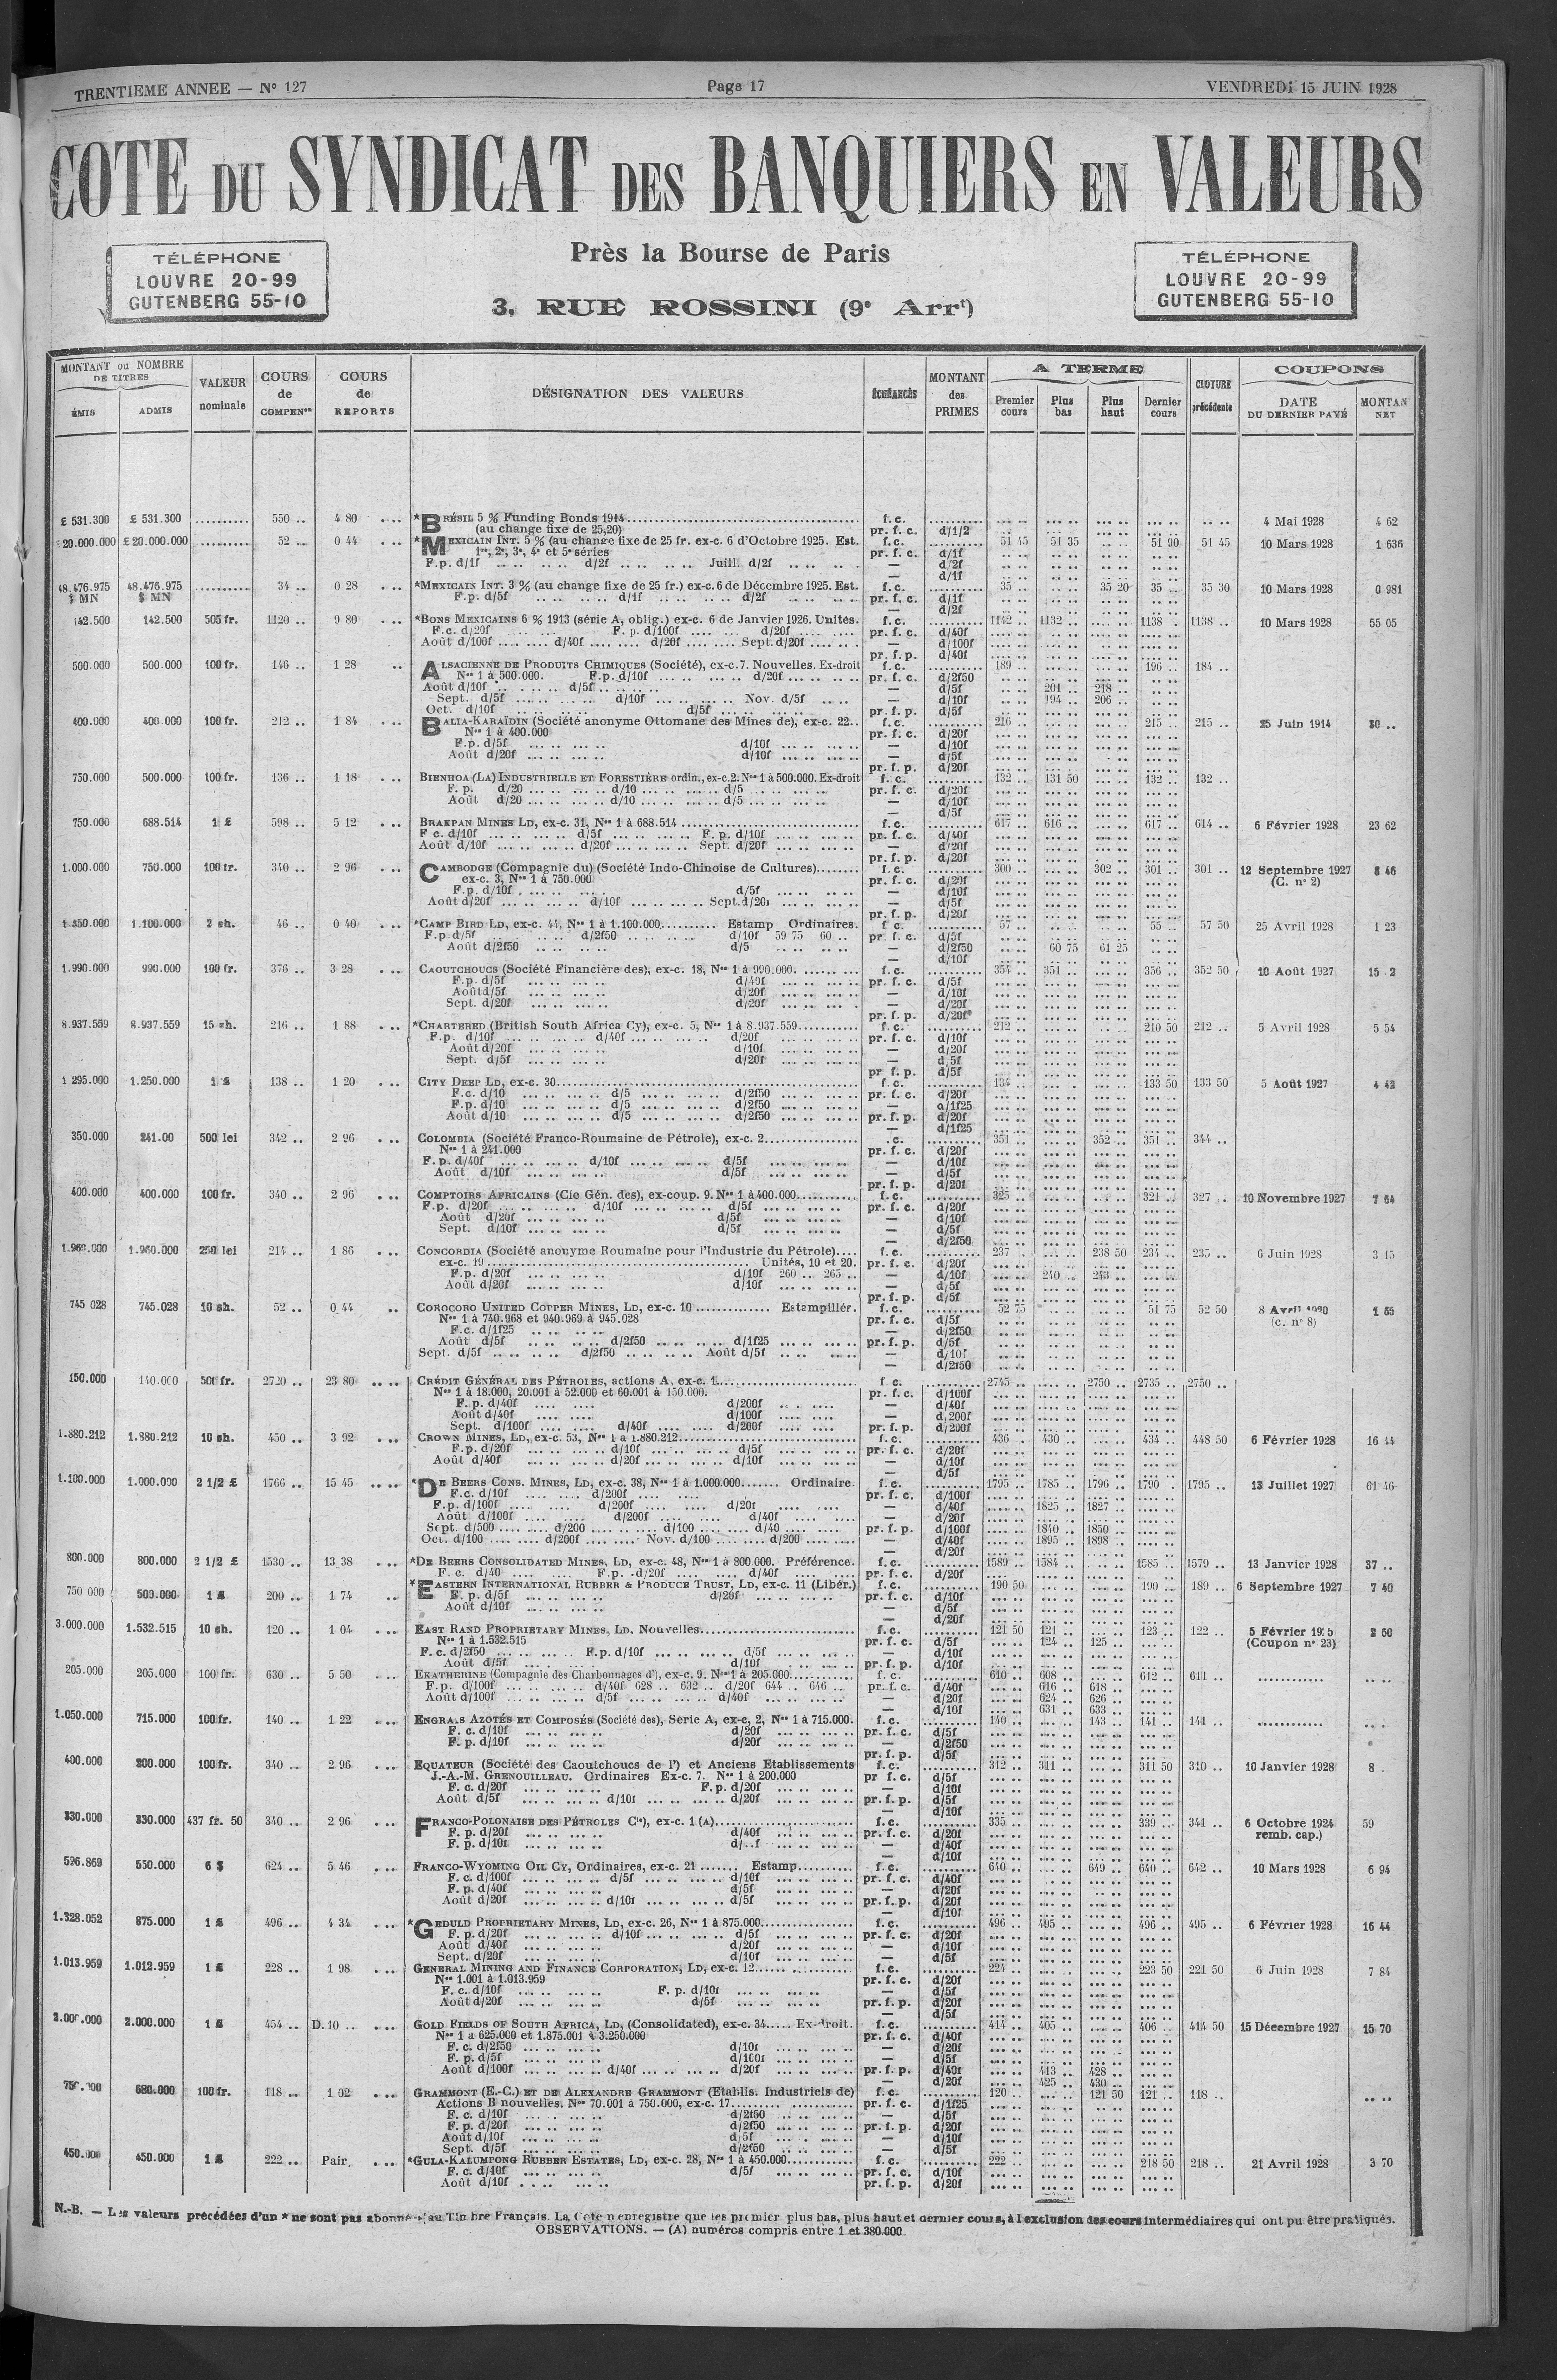 TRENTIEME ANNEE — N° 127 Page 17 VENDREDI 15 JUIN 1928
COTE DU SYNDICAT DES BANQUIERS EN VALEURS
TÉLÉPHONE
LOUVRE 20-99
GUTENBERG 55-10
Près la Bourse de Paris
3, RUE ROSSINI (9e Arrt)
TÉLÉPHONE
LOUVRE 20-99
GUTENBERG 55-10
MONTANT ou NOMBRE DE TITRES
ÉMIS ADMIS
VALEUR nominale
COURS de COMPENon
COURS de REPORTS
DÉSIGNATION DES VALEURS
ÉCHÉANCES
MONTANT des PRIMES
A TERME
Premier cours Plus bas Plus haut Dernier cours
CLOTURE précédente
COUPONS
DATE DU DERNIER PAYÉ MONTAN NET
£ 531.300 £ 531.300 .......... 550 .. 4 80 *BRÉSIL 5 % Funding Bonds 1914 f.c. 4 Mai 1928 4 62
(au change fixe de 25,20) pr. f. c. d/1/2
20.000.000 £ 20.000.000 .......... 52 .. 0 44 *MEXICAIN INT. 5 % (au change fixe de 25 fr. ex-c. 6 d'Octobre 1925. Est. f.c. 51 45 51 35 51 90 51 45 10 Mars 1928 1 636
1re, 2e, 3e, 4e et 5e séries pr. f. c. d/1f
F.p. d/1f d/2f Juill. d/2f — d/2f
— d/1f
48.476.975 $ MN 48.476.975 $ MN .......... 34 .. 0 28 *MEXICAIN INT. 3 % (au change fixe de 25 fr.) ex-c. 6 de Décembre 1925. Est. f.c. 35 .. 35 20 35 .. 35 30 10 Mars 1928 0 981
F.p. d/5f d/1f d/2f pr. f. c. d/1f
— d/2f
142.500 142.500 505 fr. 1120 .. 9 80 *BONS MEXICAINS 6 % 1913 (série A, oblig.) ex-c. 6 de Janvier 1926. Unités. f.c. 1142 .. 1132 .. 1138 .. 1138 .. 10 Mars 1928 55 05
F.c. d/20f F. p. d/100f d/20f pr. f. c. d/40f
Août d/100f d/40f d/20f Sept. d/20f — d/100f
pr. f. p. d/40f
500.000 500.000 100 fr. 146 .. 1 28 ALSACIENNE DE PRODUITS CHIMIQUES (Société), ex-c. 7. Nouvelles. Ex-droit f.c. 189 .. 196 .. 184 ..
Nos 1 à 500.000. F.p. d/10f d/20f pr. f. c. d/2f50
Août d/10f d/5f — d/5f 201 .. 218 ..
Sept. d/5f d/10f Nov. d/5f — d/10f 194 .. 206 ..
Oct. d/10f d/5f pr. f. p. d/5f
400.000 400.000 100 fr. 212 .. 1 84 BALIA-KARAÏDIN (Société anonyme Ottomane des Mines de), ex-c. 22.. f.c. 216 .. 215 .. 215 .. 25 Juin 1914 30 ..
Nos 1 à 400.000 pr. f. c. d/20f
F.p. d/5f d/10f — d/10f
Août d/20f d/10f — d/5f
pr. f. p. d/20f
750.000 500.000 100 fr. 136 .. 1 18 BIENHOA (LA) INDUSTRIELLE ET FORESTIÈRE ordin., ex-c. 2. Nos 1 à 500.000. Ex-droit f.c. 132 .. 131 50 132 .. 132 ..
F. p. d/20 d/10 d/5 pr. f. c. d/20f
Août d/20 d/10 d/5 — d/10f
— d/5f
750.000 688.514 1 £ 598 .. 5 12 BRAKPAN MINES LD, ex-c. 31, Nos 1 à 688.514 f.c. 617 .. 616 .. 617 .. 614 .. 6 Février 1928 23 62
F c. d/10f d/5f F. p. d/10f pr. f. c. d/40f
Août d/10f d/20f Sept. d/20f — d/20f
pr. f. p. d/20f
1.000.000 750.000 100 fr. 340 .. 2 96 CAMBODGE (Compagnie du) (Société Indo-Chinoise de Cultures) f.c. 300 .. 302 .. 301 .. 301 .. 12 Septembre 1927 8 46
ex-c. 3, Nos 1 à 750.000 pr. f. c. d/20f (C. n° 2)
F.p. d/10f d/5f — d/10f
Août d/20f d/10f Sept. d/20f — d/5f
pr. f. p. d/20f
1.350.000 1.100.000 2 sh. 46 .. 0 40 *CAMP BIRD LD, ex-c. 44, Nos 1 à 1.100.000 Estamp Ordinaires. f c. 57 .. 55 .. 57 50 25 Avril 1928 1 23
F.p. d/5f d/2f50 d/10f 59 75 60 .. pr. f. c. d/5f
Août d/2f50 d/5 — d/2f50 60 75 61 25
— d/10f
1.990.000 990.000 100 fr. 376 .. 3 28 CAOUTCHOUCS (Société Financière des), ex-c. 18, Nos 1 à 990.000. f.c. 354 .. 351 .. 356 .. 352 50 10 Août 1927 15 2
F.p. d/5f d/40f pr. f. c. d/5f
Août d/5f d/20f — d/10f
Sept. d/20f d/20f — d/20f
pr. f. p. d/20f
8.937.559 8.937.559 15 sh. 216 .. 1 88 *CHARTERED (British South Africa Cy), ex-c. 5, Nos 1 à 8.937.559 f.c. 212 .. 210 50 212 .. 5 Avril 1928 5 54
F.p. d/10f d/40f d/20f pr. f. c. d/10f
Août d/20f d/10f — d/20f
Sept. d/5f d/20f — d/5f
pr f. p. d/5f
1 295.000 1.250.000 1 £ 138 .. 1 20 CITY DEEP LD, ex-c. 30 f.c. 134 .. 133 50 133 50 5 Août 1927 4 42
F.c. d/10 d/5 d/2f50 pr. f. c. d/20f
F.p. d/10 d/5 d/2f50 — d/1f25
Août d/10 d/5 d/2f50 pr. f. p. d/20f
— d/1f25
350.000 241.00 500 lei 342 .. 2 96 COLOMBIA (Société Franco-Roumaine de Pétrole), ex-c. 2 .c. 351 .. 352 .. 351 .. 344 ..
Nos 1 à 241.000 pr. f. c. d/20f
F.p. d/40f d/10f d/5f — d/10f
Août d/10f d/5f — d/5f
pr. f. p. d/20f
400.000 400.000 100 fr. 340 .. 2 96 COMPTOIRS AFRICAINS (Cie Gén. des), ex-coup. 9. Nos 1 à 400.000 f.c. 325 .. 321 .. 327 .. 10 Novembre 1927 7 64
F.p. d/20f d/10f d/5f pr. f. c. d/20f
Août d/20f d/5f — d/10f
Sept. d/10f d/5f — d/5f
— d/2f50
1.960.000 1.960.000 250 lei 214 .. 1 86 CONCORDIA (Société anonyme Roumaine pour l'Industrie du Pétrole) f.c. 237 .. 238 50 234 .. 235 .. 6 Juin 1928 3 15
ex-c. 19 Unités, 10 et 20. pr. f. c. d/20f
F.p. d/20f d/10f 260 .. 265 .. — d/10f 240 .. 243 ..
Août d/20f d/10f — d/5f
pr. f. p. d/5f
745 028 745.028 10 sh. 52 .. 0 44 COROCORO UNITED COPPER MINES, LD, ex-c. 10 Estampillér. f.c. 52 75 51 75 52 50 8 Avril 1 55
Nos 1 à 740.968 et 940.969 à 945.028 pr. f. c. d/5f (c. n° 8)
F.c. d/1f25 — d/2f50
Août d/5f d/2f50 d/1f25 pr. f. p. d/5f
Sept. d/5f d/2f50 Août d/5f — d/10f
— d/2f50
150.000 140.000 500 fr. 2720 .. 23 80 CRÉDIT GÉNÉRAL DES PÉTROLES, actions A, ex-c. 1 f c. 2745 .. 2750 .. 2735 .. 2750 ..
Nos 1 à 18.000, 20.001 à 52.000 et 60.001 à 150.000. pr. f. c. d/100f
F. p. d/40f d/200f — d/40f
Août d/40f d/100f — d/200f
Sept. d/100f d/40f d/200f pr. f. p. d/200f
1.880.212 1.880.212 10 sh. 450 .. 3 92 CROWN MINES, LD, ex-c. 53, Nos 1 à 1.880.212 f.c. 436 .. 430 .. 434 .. 448 50 6 Février 1928 16 44
F.p. d/20f d/10f d/5f pr. f. c. d/20f
Août d/40f d/20f d/10f — d/10f
— d/5f
1.100.000 1.000.000 2 1/2 £ 1766 .. 15 45 *DE BEERS CONS. MINES, LD, ex-c. 38, Nos 1 à 1.000.000 Ordinaire. f.c. 1795 .. 1785 .. 1796 .. 1790 . 1795 .. 13 Juillet 1927 61 46
F.c. d/10f d/200f pr. f. c. d/100f
F.p. d/100f d/200f d/20f — d/40f 1825 .. 1827 ..
Août d/100f d/200f d/40f — d/20f
Sept. d/500 d/200 d/100 d/40 pr. f. p. d/100f 1840 .. 1850 ..
Oct. d/100 d/200f Nov. d/100 d/200 — d/40f 1895 .. 1898 ..
— d/20f
800.000 800.000 2 1/2 £ 1530 .. 13 38 *DE BEERS CONSOLIDATED MINES, LD, ex-c. 48, Nos 1 à 800 000. Préférence. f.c. 1589 .. 1584 .. 1585 .. 1579 .. 13 Janvier 1928 37 ..
F. c. d/40 F.p. .d/20f d/40f pr. f. c. d/20f
750 000 500.000 1 £ 200 .. 1 74 *EASTERN INTERNATIONAL RUBBER & PRODUCE TRUST, LD, ex-c. 11 (Libér.) f.c. 190 50 190 .. 189 .. 6 Septembre 1927 7 40
F. p. d/5f d/20f pr. f. c. d/10f
Août d/10f — d/5f
— d/20f
3.000.000 1.532.515 10 sh. 120 .. 1 04 EAST RAND PROPRIETARY MINES, LD. Nouvelles f.c. 121 50 121 .. 123 .. 122 .. 5 Février 2 60
Nos 1 à 1.532.515 pr. f. c. d/5f 124 .. 125 .. (Coupon n° 23)
F. c. d/2f50 F.p. d/10f d/5f — d/10f
Août d/5f d/10f pr. f. p. d/10f
205.000 205.000 100 fr. 630 .. 5 50 EKATHERINE (Compagnie des Charbonnages d'), ex-c. 9. Nos 1 à 205.000 f.c. 610 .. 608 .. 612 .. 611 .. ............
F.p. d/100f d/40f 628 .. 632 .. d/20f 644 .. 646 .. pr. f. c. d/40f 616 .. 618 ..
Août d/100f d/5f d/40f — d/20f 624 .. 626 ..
— d/10f 631 .. 633 ..
1.050.000 715.000 100 fr. 140 .. 1 22 ENGRAIS AZOTÉS ET COMPOSÉS (Société des), Série A, ex-c, 2, Nos 1 à 715.000. f.c. 140 .. 143 .. 141 .. 141 .. ............
F. c. d/10f d/20f pr. f. c. d/5f
F. p. d/10f d/20f — d/2f50
pr. f. p. d/5f
400.000 200.000 100 fr. 340 .. 2 96 EQUATEUR (Société des Caoutchoucs de l') et Anciens Etablissements f.c. 312 .. 311 .. 311 50 310 .. 10 Janvier 1928 8 .
J.-A.-M. GRENOUILLEAU. Ordinaires Ex-c. 7. Nos 1 à 200.000 pr f. c. d/5f
F. c. d/20f F.p. d/20f — d/10f
Août d/5f d/10f d/20f pr. f. p. d/5f
— d/10f
330.000 330.000 437 fr. 50 340 .. 2 96 FRANCO-POLONAISE DES PÉTROLES Cie), ex-c. 1 (A) f.c. 335 .. 339 .. 341 .. 6 Octobre 1924 59
F. p. d/20f d/40f pr. f. c. d/20f remb. cap.)
F. p. d/10f d/..f — d/40f
— d/10f
526.869 550.000 6 $ 624 .. 5 46 FRANCO-WYOMING OIL CY, Ordinaires, ex-c. 21 Estamp f.c. 640 .. 649 .. 640 .. 642 .. 10 Mars 1928 6 94
F. c. d/100f d/5f d/10f pr. f. c. d/40f
F. p. d/40f d/5f — d/20f
Août d/20f d/10f d/5f pr. f. p. d/20f
— d/10f
1.328.052 875.000 1 £ 496 .. 4 34 *GEDULD PROPRIETARY MINES, LD, ex-c. 26, Nos 1 à 875.000 f.c. 496 .. 495 .. 496 .. 495 .. 6 Février 1928 16 44
F. p. d/20f d/10f d/5f pr. f. c. d/20f
Août d/40f d/20f — d/10f
Sept. d/20f d/10f — d/5f
1.013.959 1.012.959 1 £ 228 .. 1 98 GENERAL MINING AND FINANCE CORPORATION, LD, ex-c. 12 f.c. 224 .. 223 50 221 50 6 Juin 1928 7 84
Nos 1.001 à 1.013.959 pr. f. c. d/20f
F. c. d/10f F. p. d/10f — d/5f
Août d/20f d/5f pr. f. p. d/20f
— d/5f
2.000.000 2.000.000 1 £ 454 .. D. 10 .. GOLD FIELDS OF SOUTH AFRICA, LD, (Consolidated), ex-c. 34 Ex-droit. f.c. 414 .. 405 .. 406 .. 414 50 15 Décembre 1927 15 70
Nos 1 à 625.000 et 1.875.001 à 3.250.000 pr. f. c. d/40f
F. c. d/2f50 d/10f — d/20f
F. p. d/5f d/100f — d/5f
Août d/100f d/40f d/20f pr. f. p. d/40f 413 .. 428 ..
— d/20f 425 .. 430 ..
680.000 100 fr. 118 .. 1 02 GRAMMONT (E.-C.) ET DE ALEXANDRE GRAMMONT (Etablis. Industriels de) f.c. 120 .. 121 50 121 .. 118 ..
Actions B nouvelles. Nos 70.001 à 750.000, ex-c. 17 pr. f. c. d/1f25
F. c. d/10f d/2f50 — d/5f
F. p. d/20f d/2f50 pr. f. p. d/20f
Août d/10f d/5f — d/10f
Sept. d/5f d/2f50 — d/5f
450.000 450.000 1 £ 222 .. Pair. *GULA-KALUMPONG RUBBER ESTATES, LD, ex-c. 28, Nos 1 à 450.000 f.c. 222 .. 218 50 218 .. 21 Avril 1928 3 70
F. c. d/10f d/5f pr. f. c. d/10f
Août d/10f pr. f. p. d/20f
N.-B. — Les valeurs précédées d'un * ne sont pas abonnées au Timbre Français. La Cote n'enregistre que les premier plus bas, plus haut et dernier cours, à l'exclusion des cours intermédiaires qui ont pu être pratiqués.
OBSERVATIONS. — (A) numéros compris entre 1 et 380.000.